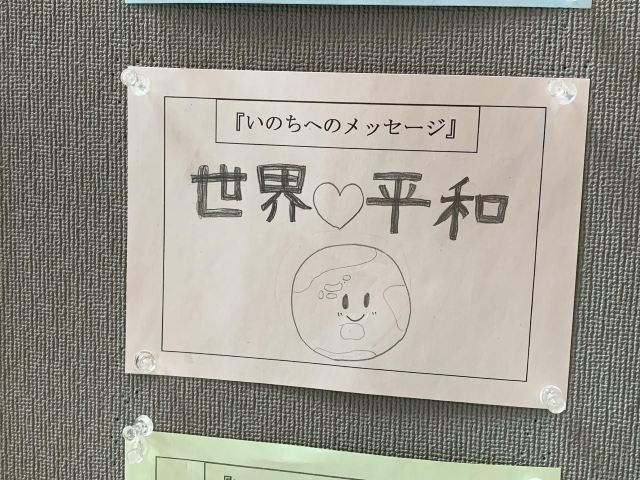 『いのちへのメッセージ』
世界♡平和